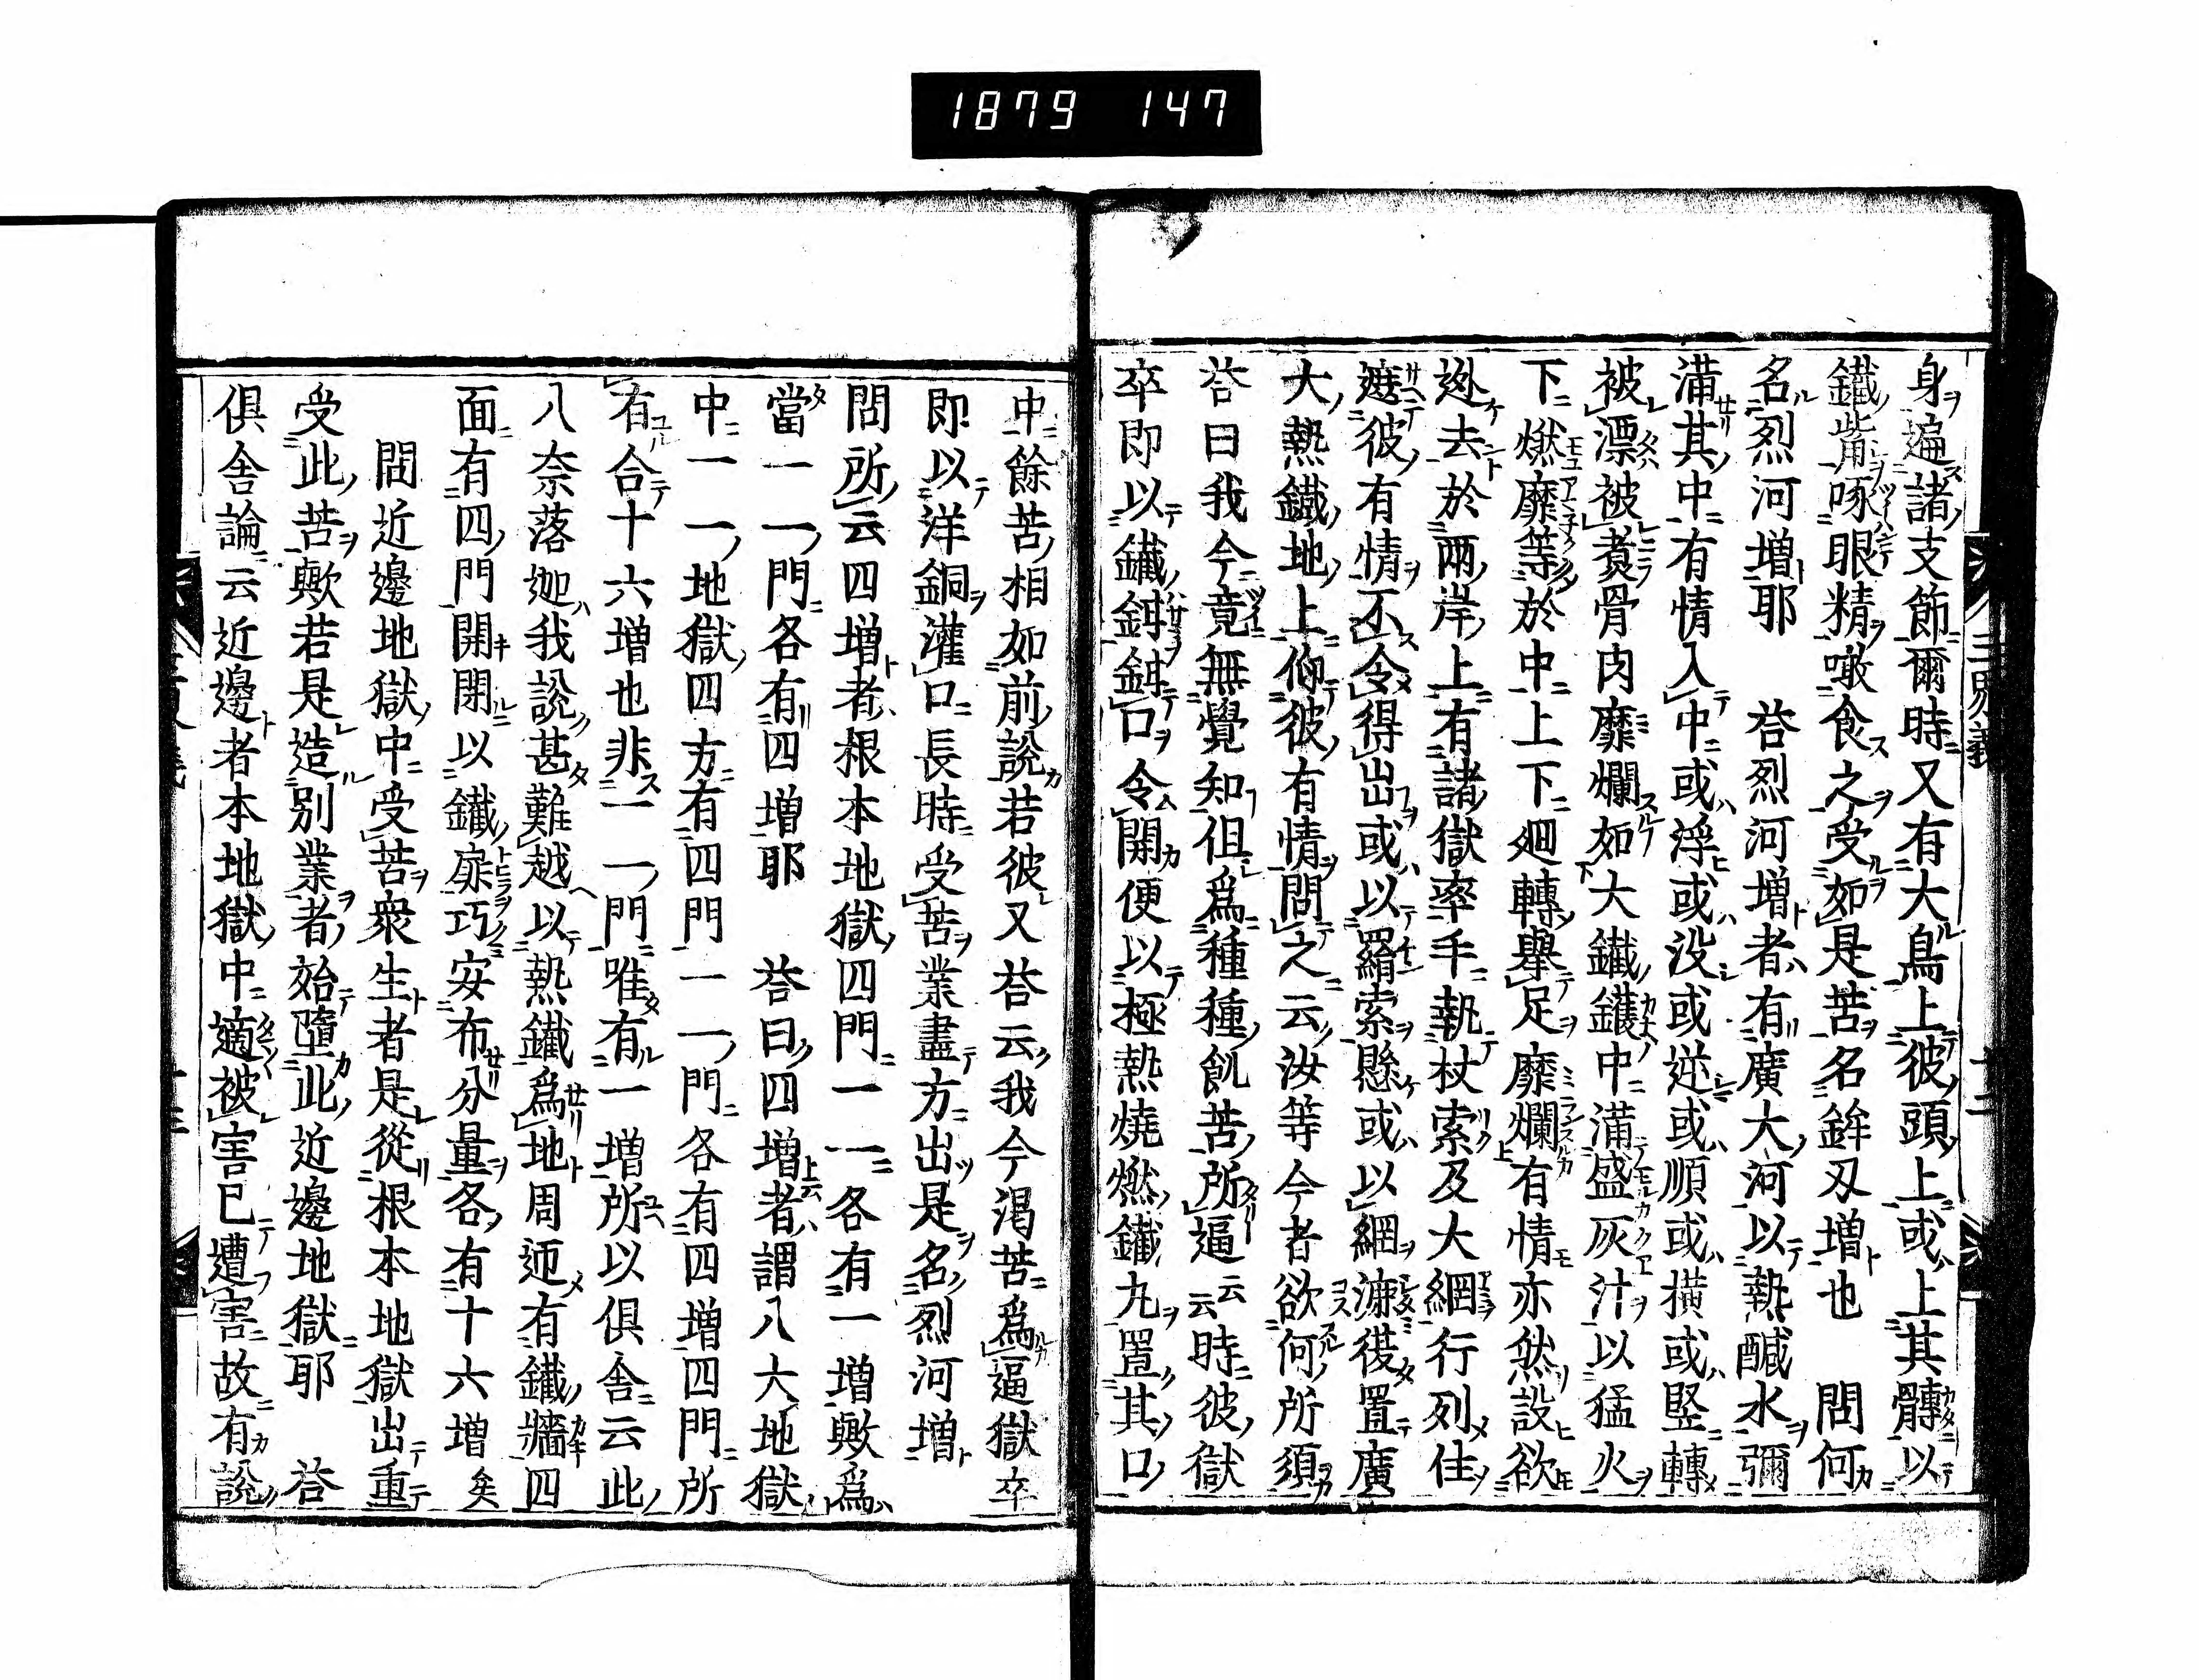 1879 147
身遍諸支節爾時又有大鳥上彼頭上或上其髆以
鐵觜啄眼精噉食之受如是苦名鉾刄増也 問何
名烈河増耶 荅烈河増者有廣大河以熱醎水彌
滿其中有情入中或浮或没或逆或順或横或竪轉
被漂被煑骨肉靡爛如大鐵鑊中滿盛灰汁以猛火
下燃靡等於中上下廻轉擧足靡爛有情亦然設欲
迯去於兩岸上有諸獄率手執杖索及大網行列住
遮彼有情不令得出或以羂索懸或以網漉復置廣
大熱鐵地上仰彼有情問之云汝等今者欲何所須
荅曰我今竟無覺知但爲種種飢苦所逼云云時彼獄
卒即以鐵鉗鉗口令開便以極熱燒燃鐵丸置其口
中餘苦相如前説若彼又荅云我今渇苦爲逼獄卒
即以洋銅灌口長時受苦業盡方出是名烈河増
問所云四増者根本地獄四門一一各有一増歟爲
當一一門各有四増耶 荅曰四増者謂八大地獄
中一一地獄四方有四門一一門各有四増四門所
有合十六増也非一一門唯有一増所以倶舎云此
八奈落迦我説甚難越以熱鐵爲地周迊有鐵牆四
面有四門開閉以鐵扉巧安布分量各有十六増矣
問近邊地獄中受苦衆生者是從根本地獄出重
受此苦歟若是造別業者始墮此近邊地獄耶 荅
倶舎論云近邊者本地獄中適被害已遭害故有説
三界義
十二